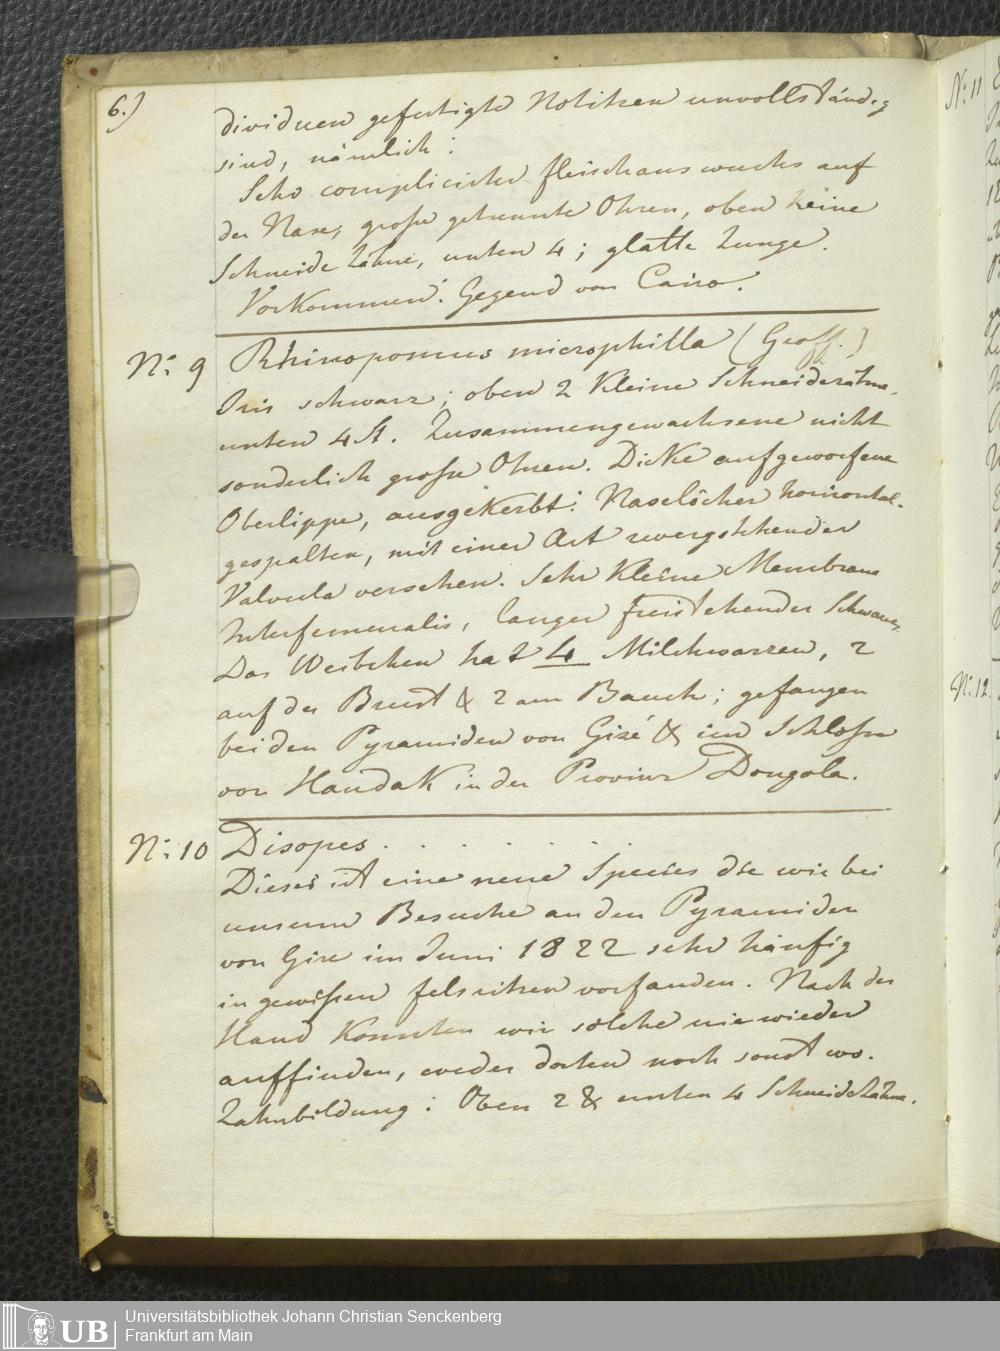 6.)
dividuen gefertigte Notitzen unvollständig
sind, nämlich:
Sehr complicirter fleischauswuchs auf
der Nase, große getrennte Ohren, oben keine
Schneidezähne, unten 4; glatte Zunge.
Vorkommen: Gegend von Cairo.
N: 9 Rhinopomus microphilla (Geoff.)
Iris schwarz; oben 2 kleine Schneidezähne,
unten 4 St. Zusammengewachsene nicht
sonderlich große Ohren. Dicke aufgeworfene
Oberlippe, ausgekerbt: Naselöcher horizontal-
gespalten, mit einer Art zwergstehender
Valvula versehen. Sehr kleine Membrana
Interfemeralis, langer freistehender Schwanz.
Das Weibchen hat 4 Milchwarzen, 2
auf der Brust & 2 am Bauch; gefangen
bei den Pyramiden von Gizé & im Schloße
von Handak in der Provinz Dongola.
N: 10 Disopes . . . . . . .
Dieses ist eine neue Species die wir bei
unserm Besuche an den Pyramiden
von Gize im Juni 1822 sehr häufig
in gewißen felsritzen vorfanden. Nach der
Hand konnten wir solche nie wieder
auffinden, weder dorten noch sonst wo.
Zahnbildung: Oben 2 & unten 4 Schneidezähne.
N: 11
N: 12.
UB
Universitätsbibliothek Johann Christian Senckenberg
Frankfurt am Main